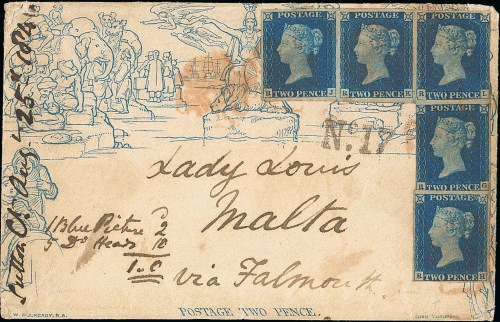 POSTAGE POSTAGE POSTAGE
TWO PENCE. TWO PENCE. TWO PENCE.
POSTAGE
TWO PENCE.
POSTAGE
TWO PENCE.
No. 17
Lady Louis
Malta
via Falmouth
1 Blue Picture 2
5 Do Heads 10
1.0
Aug. 25th
W. MULREADY, R.A.
POSTAGE TWO PENCE.